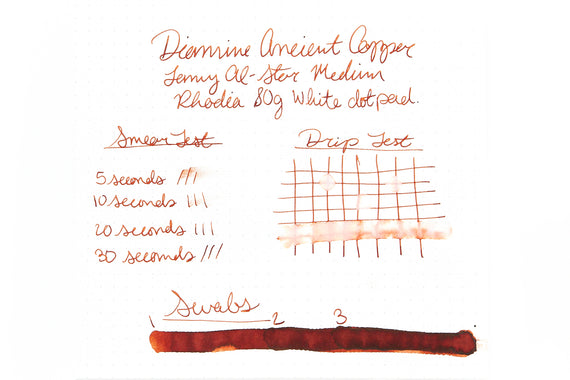 Diamine Ancient Copper
Lamy Al-Star Medium
Rhodia 80g White dotpad.
Smear Test
5 seconds ///
10 seconds ///
20 seconds ///
30 seconds ///
Drip Test
Swabs
1 2 3